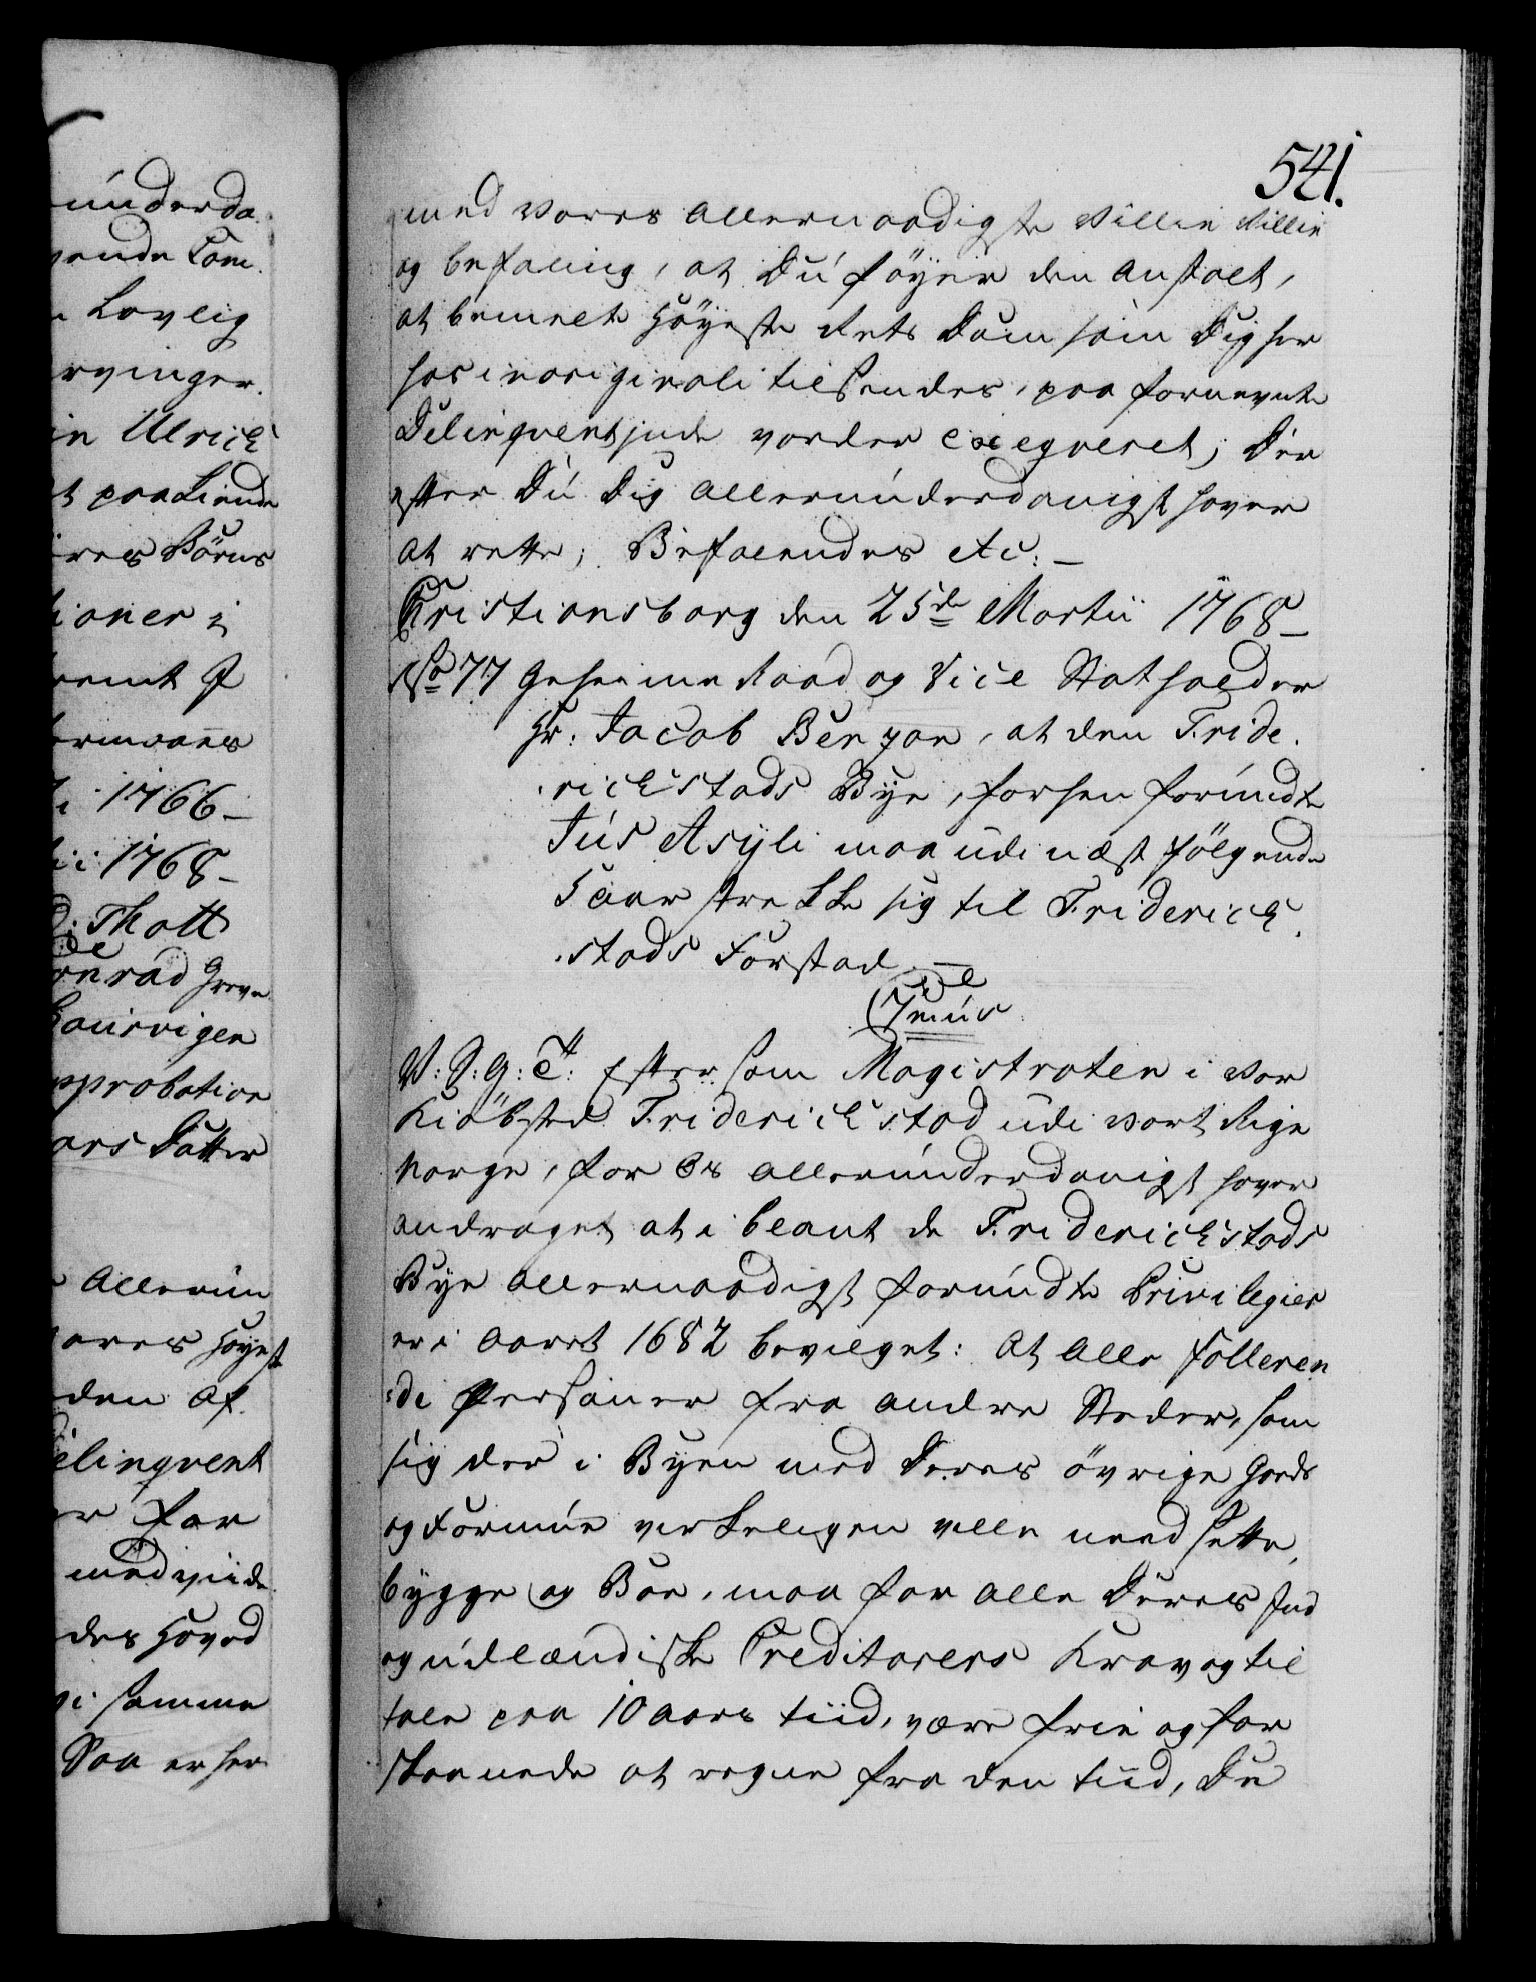 541.
med vores allernaadigste Villie Villie
og befaling, at Du föyer den Anstalt,
at bemelte Höyeste Rets Dom som Dig her
hos in originali tilsendes, paa fornevnte
Delinqventinde vorder exeqveret; Der
efter Du Dig allerunderdanigst haver
at rette; Befalendes etc: —
Christiansborg den 25de Martii 1768 —
No 77 Geheime Raad og Vice Statholder
Hr: Jacob Benzon, at den Fride
richstads Bye, forhen forundte
Jus Asyli maa udi næst fölgende
5 aar strekke sig til Friderich
stads Forstad. —
C 7mus
V: S: G: T: Eftersom Magistraten i vor
Kiöbsted Friderichstad udi vort Rige
Norge, for Os allerunderdanigst haver
andraget at i blant de Friderichstads
Bye allernaadigst forundte Privilegier
er i Aaret 1682 bevilget: At alle falleren
de Personer fra andre Steder, som
sig der i Byen med Deres övrige Gods
og Formue virkeligen ville nedsette,
bygge og Boe, maa for alle Deres Ind
og udlændiske Creditorers Krav og til
tale paa 10 aars tiid, være frie og for
skaanede at regne fra den tiid, De
underda
vende Com
Lovlig
rvinger.
in Ulrich
t paa Liende
res Börns
ioner i
1766 —
1768 —
Thott
onrad Greve
Laurvigen
pprobation
ars Datter
Allerun
vores Höyst
den Af
elinqvent
er for
med viide
des Hoved
i samme
Saa er her